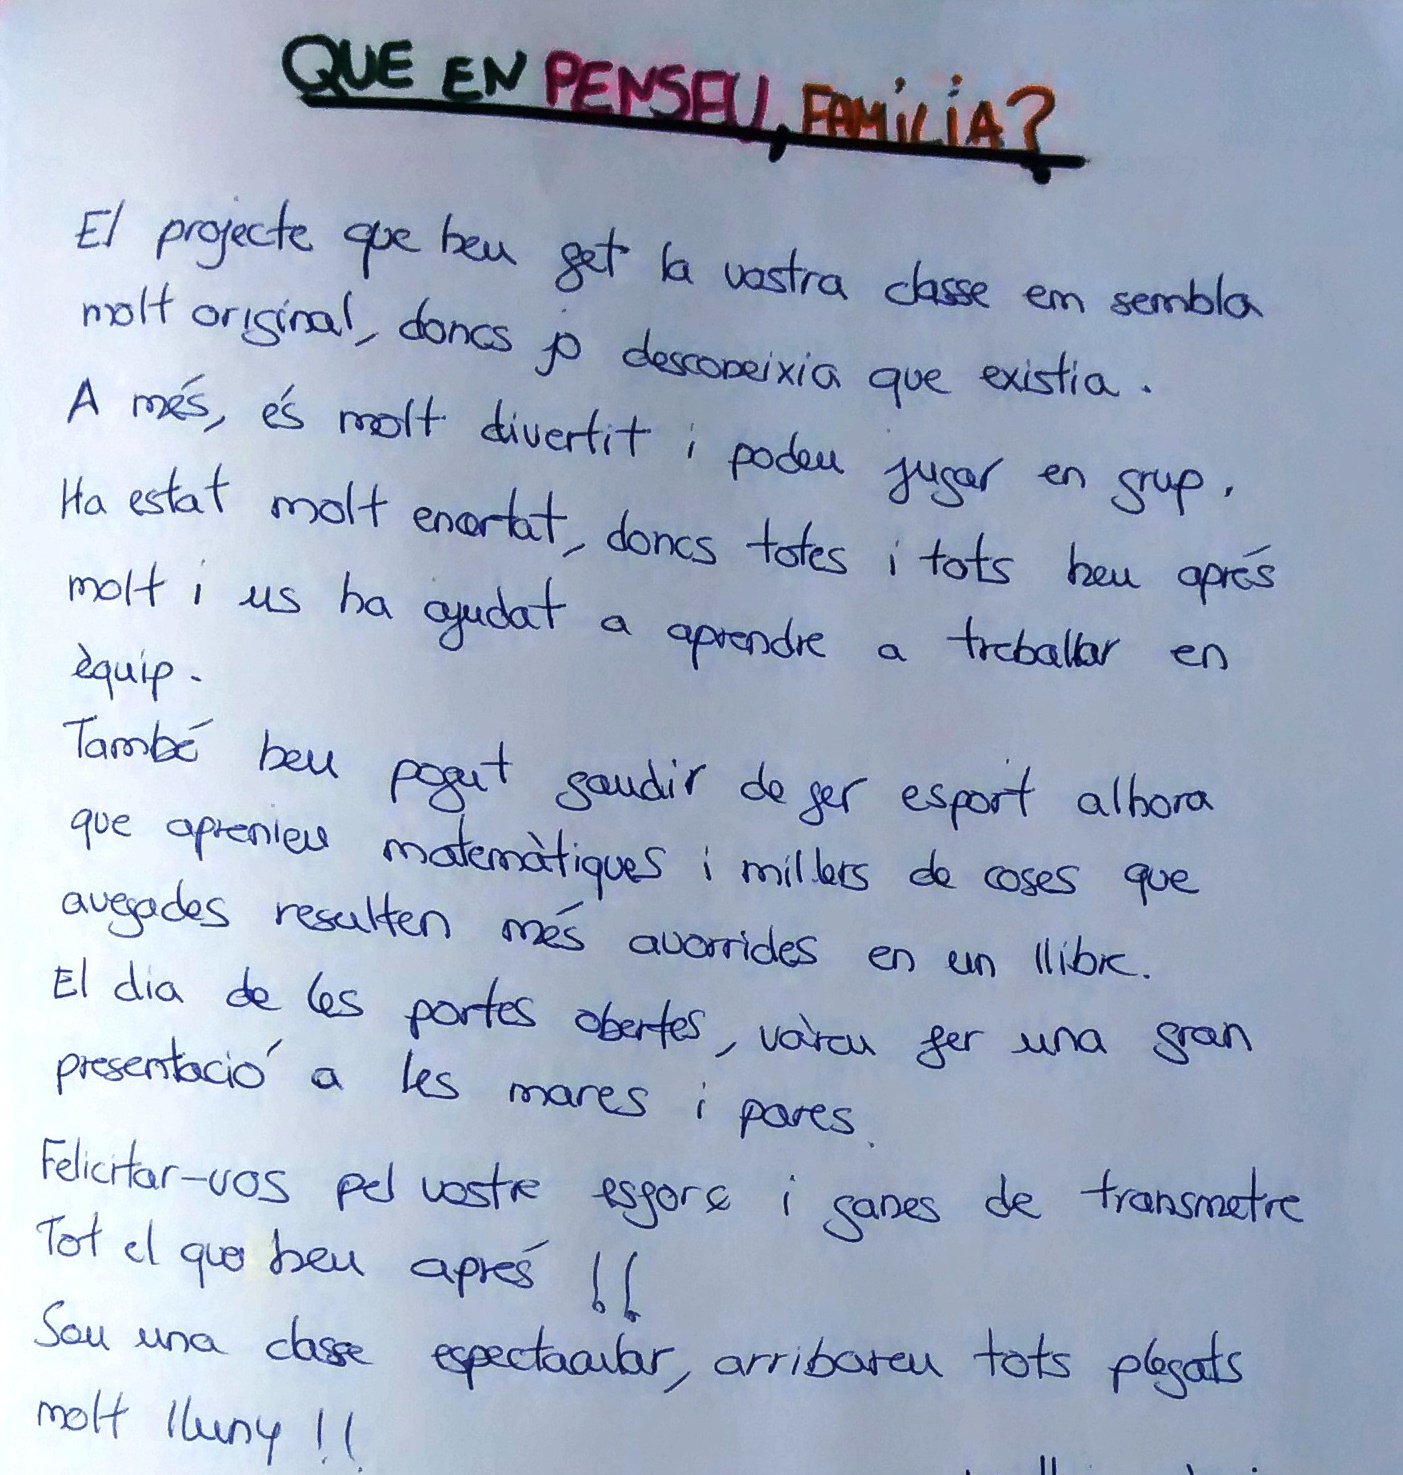 QUE EN PENSEU, FAMÍLIA?
El projecte que heu fet la vostra classe em sembla
molt original, doncs jo desconeixia que existia.
A més, és molt divertit i podeu jugar en grup.
Ha estat molt encertat, doncs totes i tots heu aprés
molt i us ha ajudat a aprendre a treballar en
èquip.
També heu pogut gaudir de fer esport alhora
que aprenieu matemàtiques i millers de coses que
avegades resulten més avorrides en un llibre.
El dia de les portes obertes, vàreu fer una gran
presentació a les mares i pares.
Felicitar-vos pel vostre esforç i ganes de transmetre
Tot el que heu aprés !!
Sou una classe espectacular, arribareu tots plegats
molt lluny !!